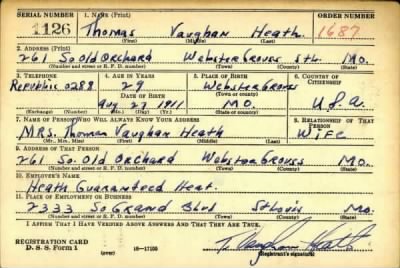 SERIAL NUMBER 1. NAME (Print) ORDER NUMBER
1126 Thomas Vaughan Heath 1687
(First) (Middle) (Last)
2. ADDRESS (Print)
261 So Old Orchard Webster Groves StL. Mo.
(Number and street or R. F. D. number) (Town) (County) (State)
3. TELEPHONE 4. AGE IN YEARS 5. PLACE OF BIRTH 6. COUNTRY OF CITIZENSHIP
Republic 0288 29 Webster Groves
DATE OF BIRTH (Town or county)
Aug 27 1911 Mo. U.S.A.
(Exchange) (Number) (Mo.) (Day) (Yr.) (State or country)
7. NAME OF PERSON WHO WILL ALWAYS KNOW YOUR ADDRESS 8. RELATIONSHIP OF THAT PERSON
Mrs. Thomas Vaughan Heath Wife
(Mr., Mrs., Miss) (First) (Middle) (Last)
9. ADDRESS OF THAT PERSON
261 So. Old Orchard Webster Groves Mo.
(Number and street or R. F. D. number) (Town) (County) (State)
10. EMPLOYER'S NAME
Heath Guaranteed Heat.
11. PLACE OF EMPLOYMENT OR BUSINESS
2333 So Grand Blvd St Louis Mo.
(Number and street or R. F. D. number) (Town) (County) (State)
I AFFIRM THAT I HAVE VERIFIED ABOVE ANSWERS AND THAT THEY ARE TRUE.
REGISTRATION CARD
D. S. S. Form 1 16-17105 T. Vaughan Heath
(over) (Registrant's signature)